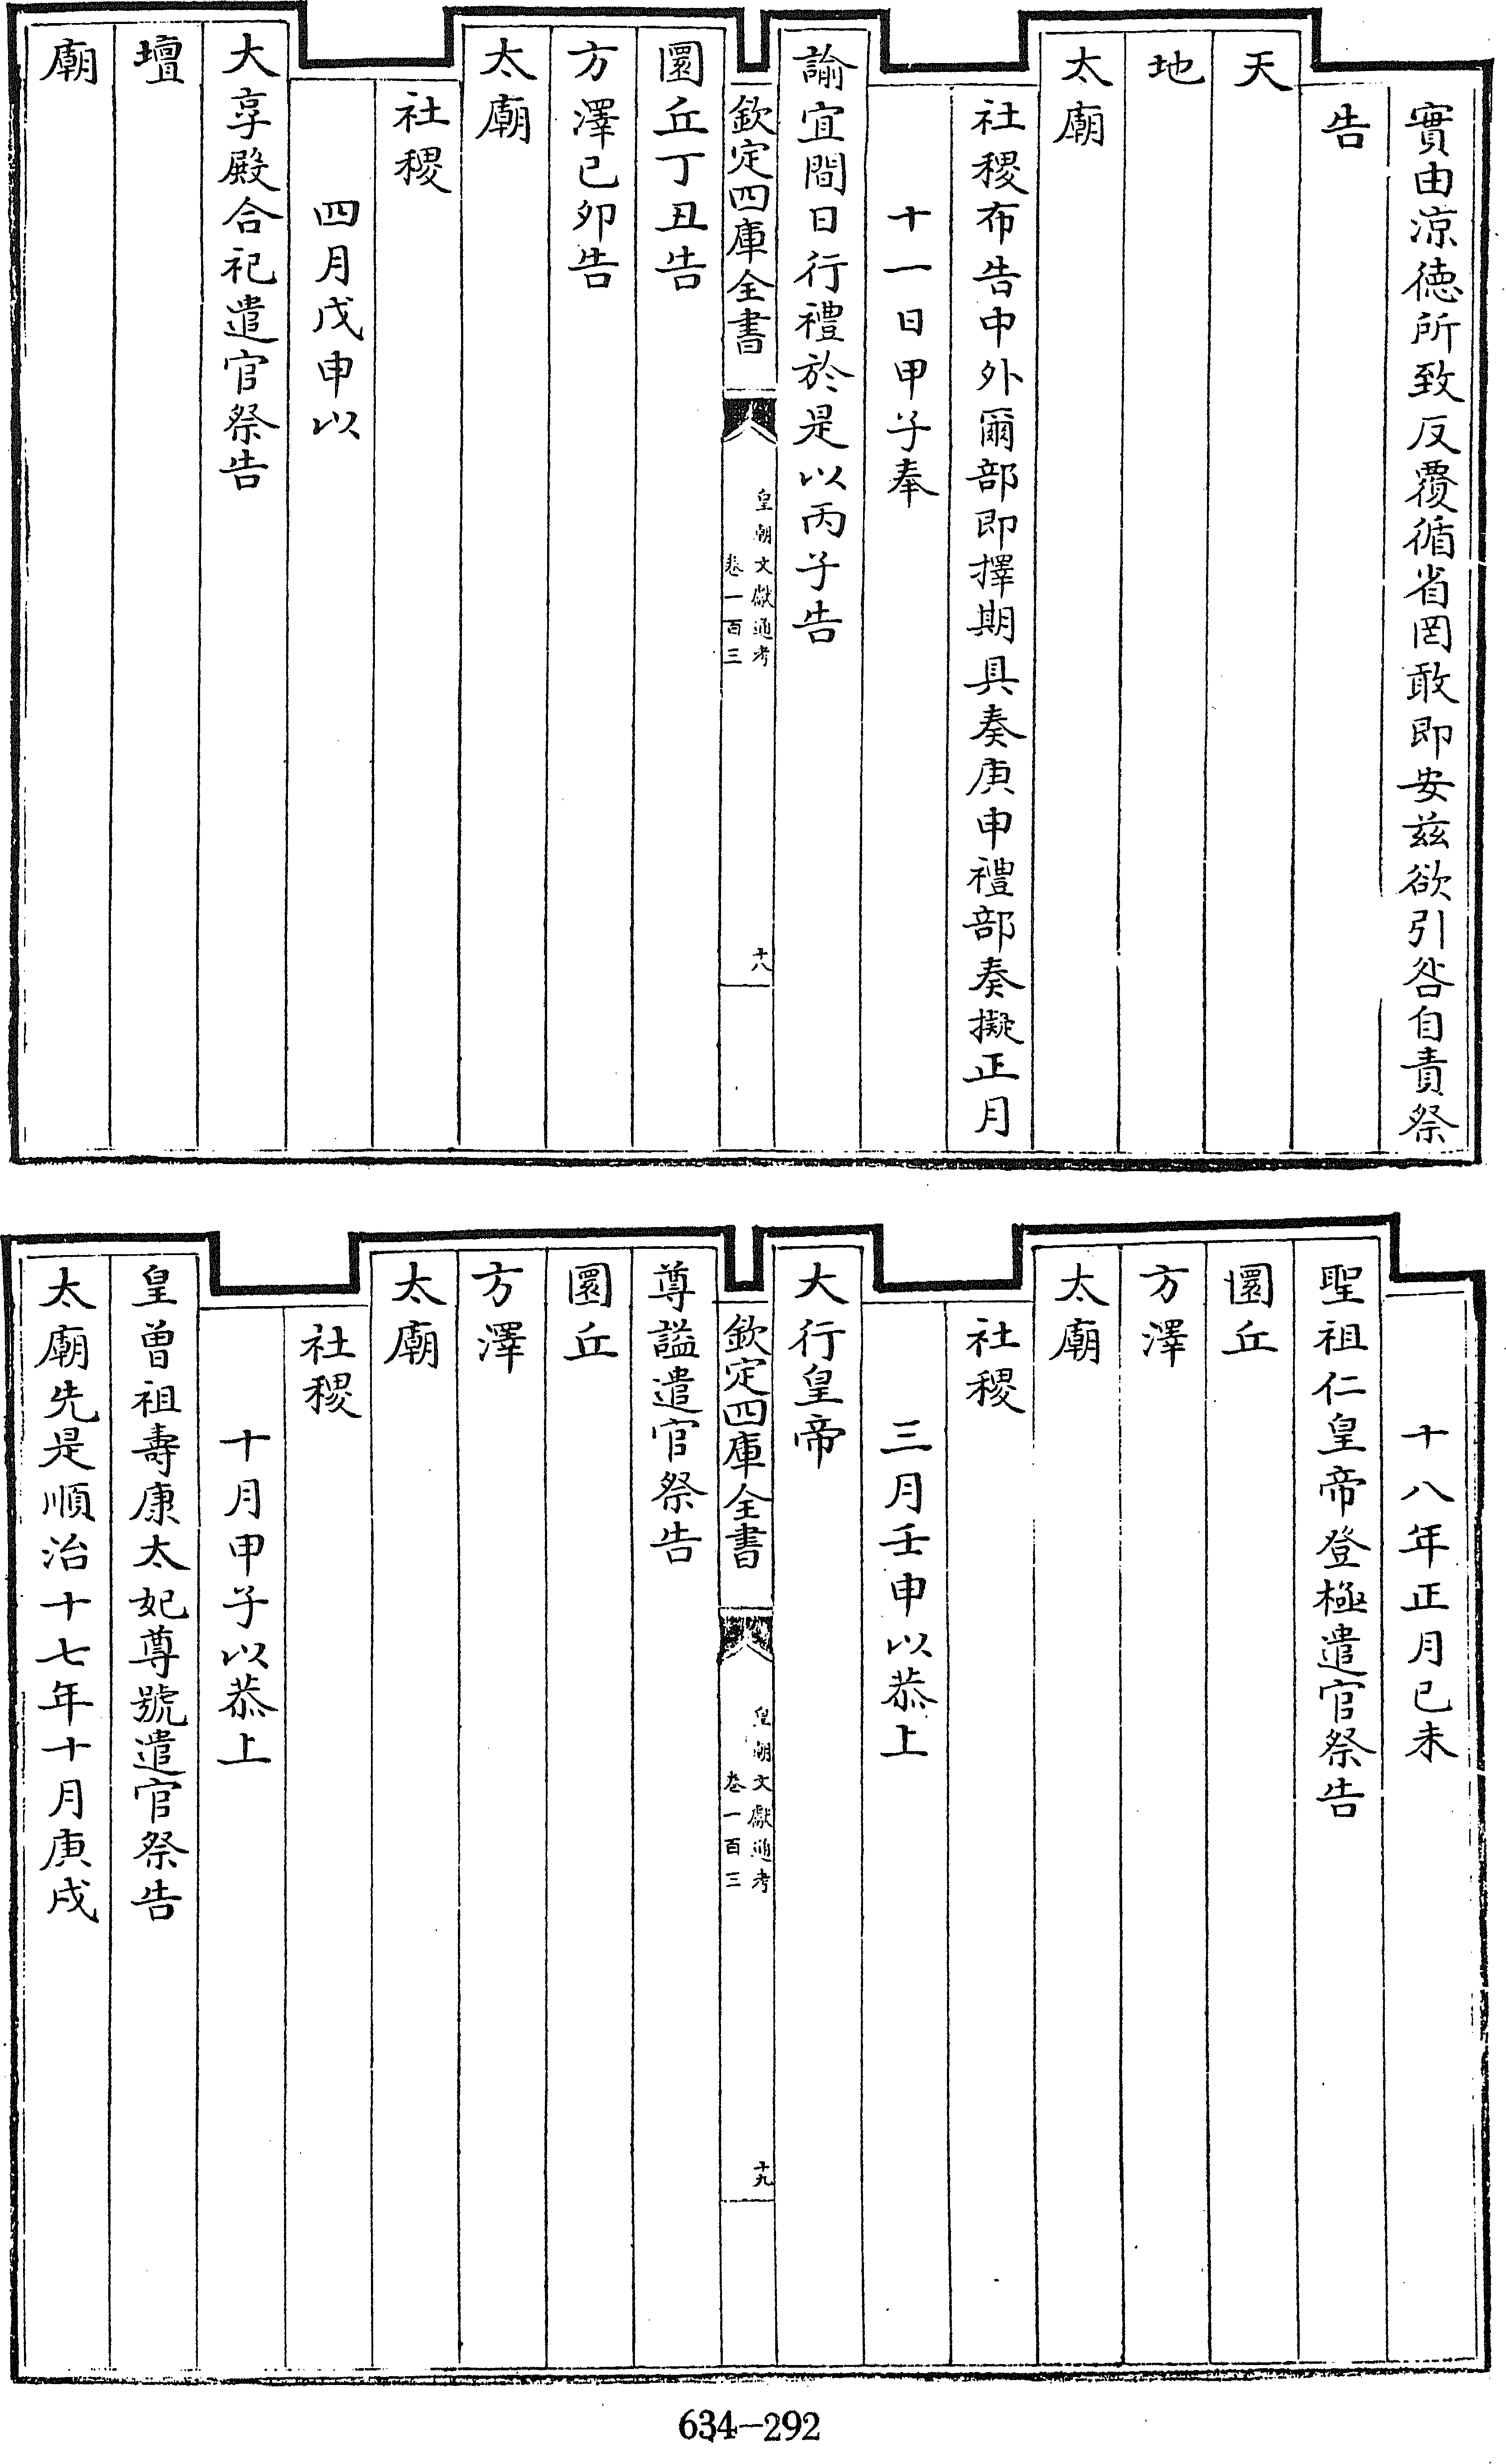 實由涼徳所致反覆循省罔敢即安兹欲引咎自責祭
告
天
地
太廟
社稷布告中外爾部即擇期具奏庚申禮部奏擬正月
十一日甲子奉
諭宜間日行禮於是以丙子告
欽定四庫全書
皇朝文獻通考
卷一百三
十八
圜丘丁丑告
方澤已卯告
太廟
社稷
四月戊申以
大享殿合祀遣官祭告
壇
廟
十八年正月已未
聖祖仁皇帝登極遣官祭告
圜丘
方澤
太廟
社稷
三月壬申以恭上
大行皇帝
欽定四庫全書
皇朝文獻通考
卷一百三
十九
尊諡遣官祭告
圜丘
方澤
太廟
社稷
十月甲子以恭上
皇曾祖壽康太妃尊號遣官祭告
太廟先是順治十七年十月庚戌
634-292